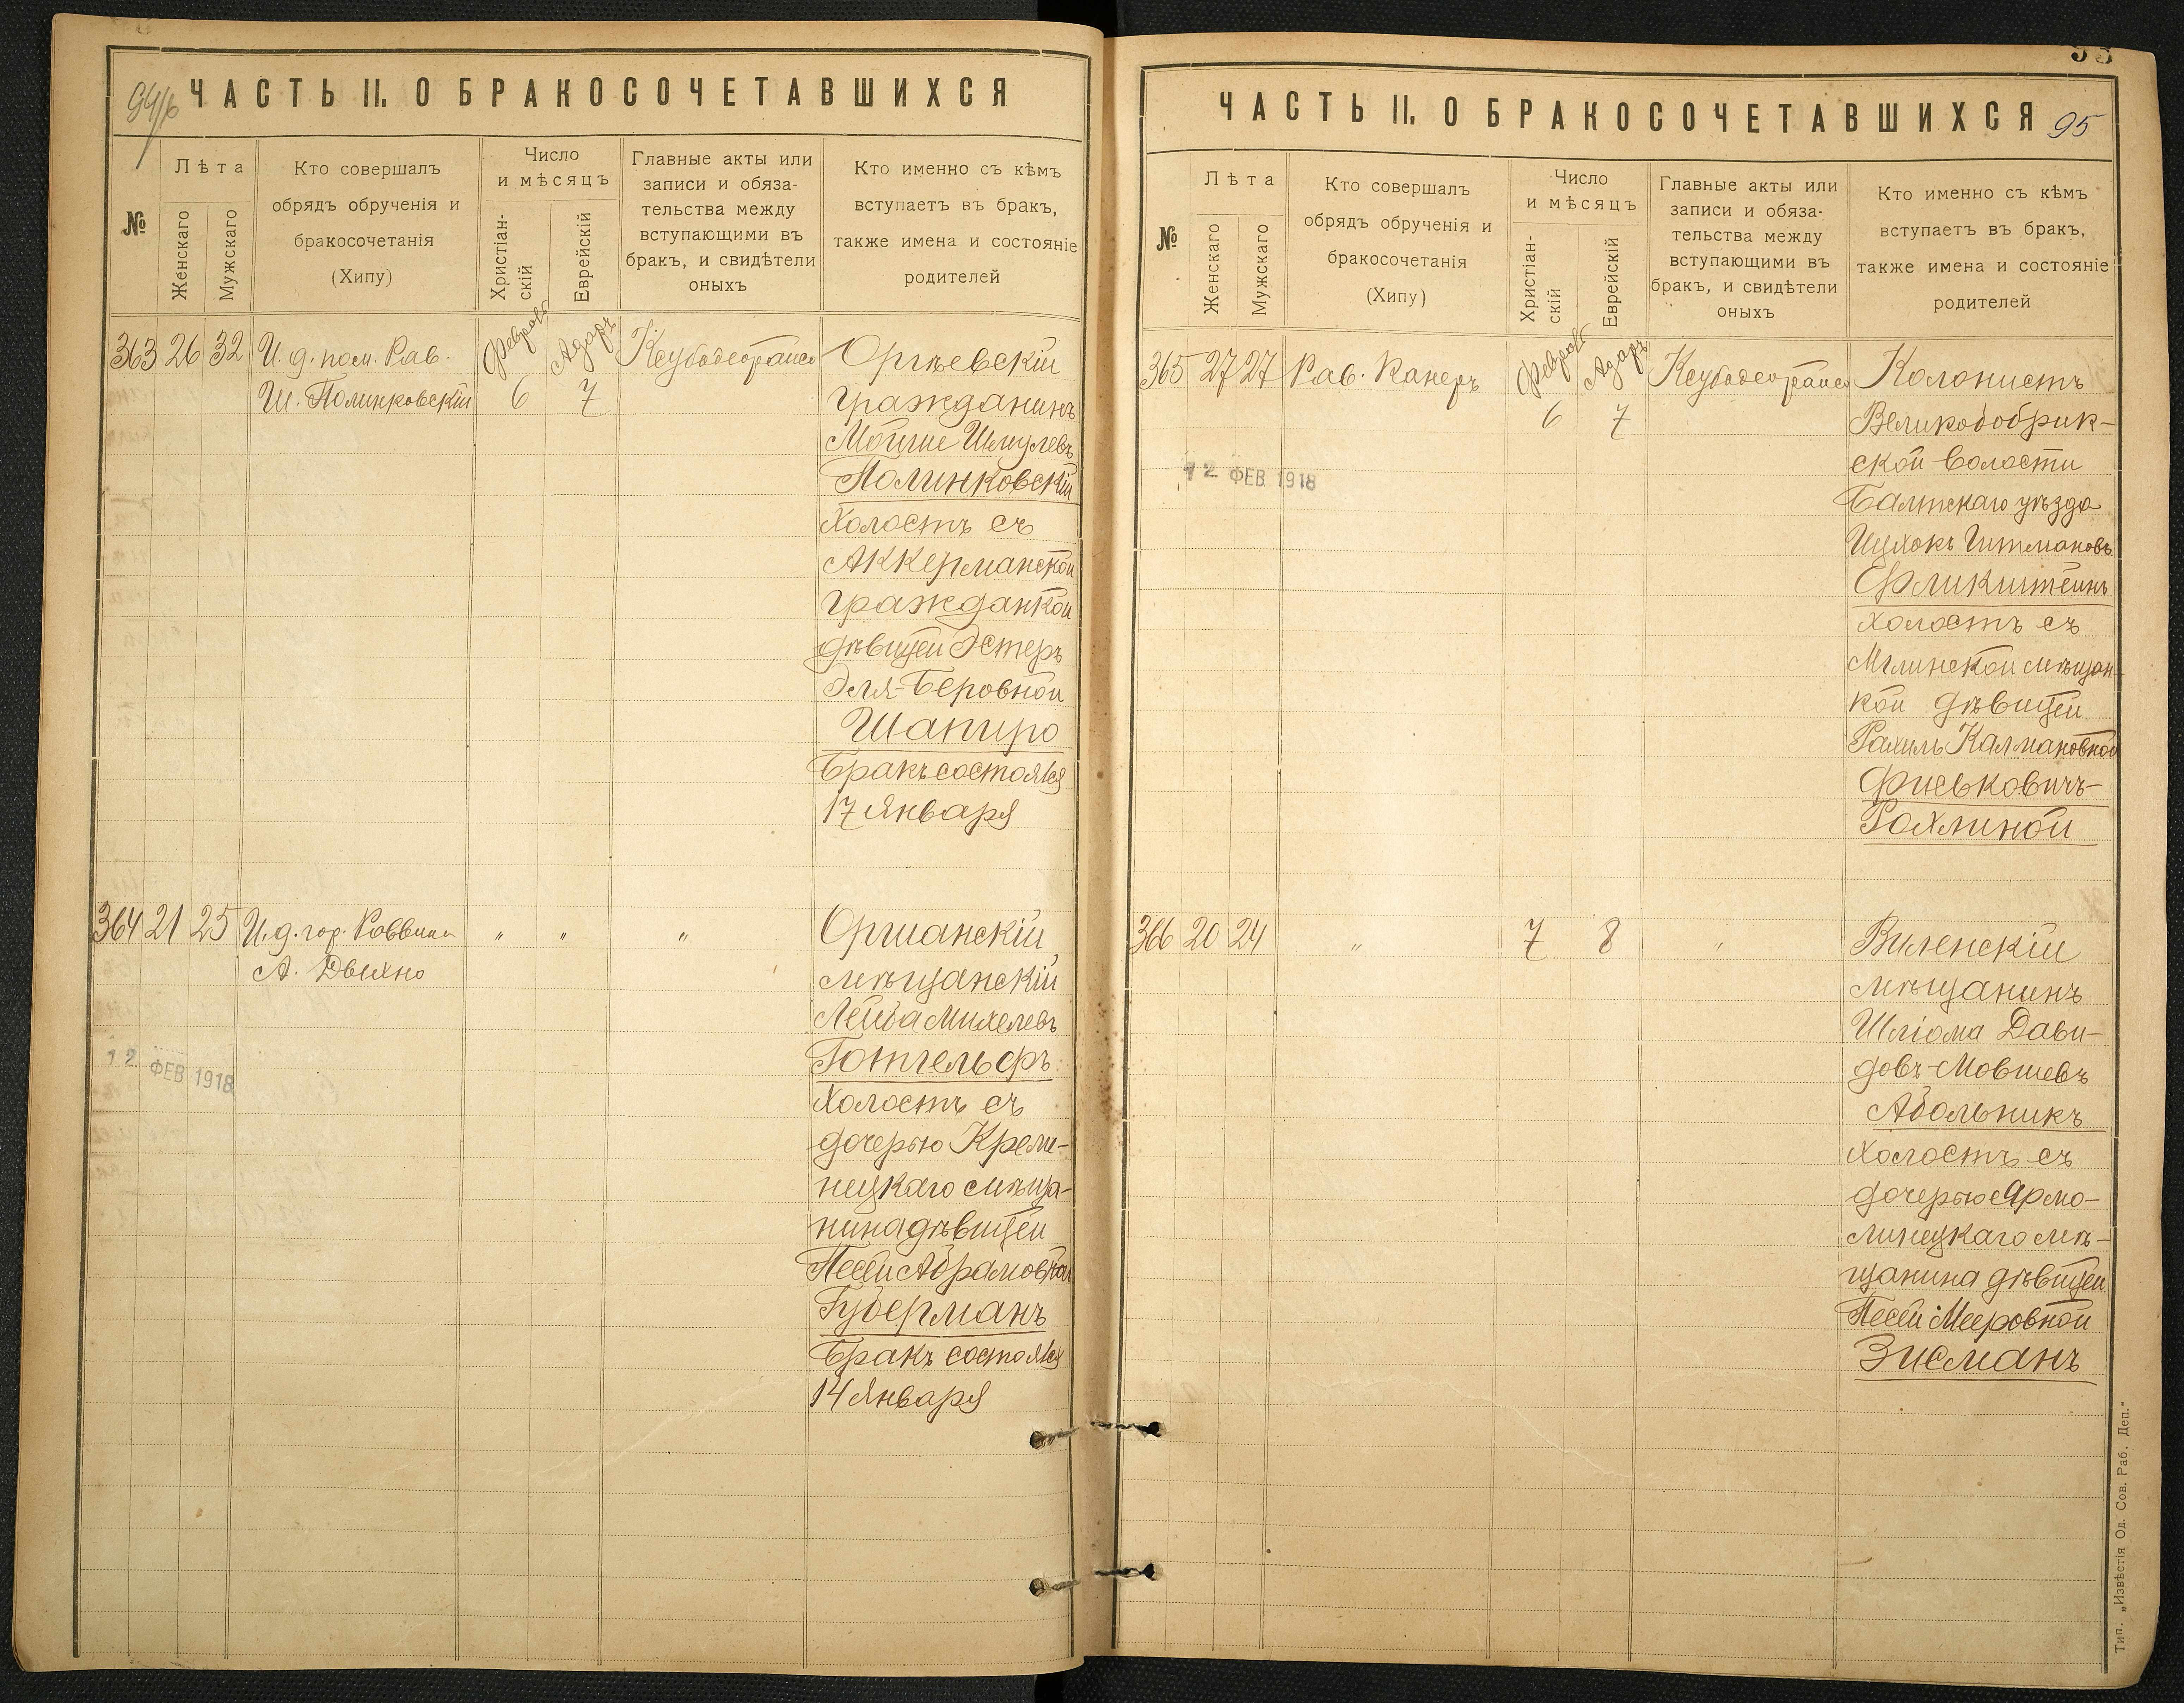 94/б
ЧАСТЬ II. О БРАКОСОЧЕТАВШИХСЯ
№
Лѣта
Женскаго
Мужскаго
Кто совершалъ
обрядъ обрученія и
бракосочетанія
(Хипу)
Число
и мѣсяцъ
Христіан-
скій
Еврейскій
Главные акты или
записи и обяза-
тельства между
вступающими въ
бракъ, и свидѣтели
оныхъ
Кто именно съ кѣмъ
вступаетъ въ бракъ,
также имена и состояніе
родителей
363 26 32 И. д. пом. Рав.
Ш. Полинковскій
Февраль
6
Адаръ
7
Оргѣевскій
гражданинъ
Мойше Шмулевъ
Полинковскій
холостъ съ
Аккерманской
гражданкой
дѣвицей Эстеръ
Эля-Беровной
Шапиро
Бракъ состоялся
17 Января
364 21 25 И. д. гор. Раввина
А. Двихно
" " "
12 ФЕВ 1918
Оршанскій
мѣщанскій
Лейба Михелевъ
Готгельфъ
холостъ съ
дочерью Креме-
нецкаго мѣща-
нина дѣвицей
Песей Абрамовной
Губерманъ
Бракъ состоялся
14 Января
ЧАСТЬ II. О БРАКОСОЧЕТАВШИХСЯ
95
№
Лѣта
Женскаго
Мужскаго
Кто совершалъ
обрядъ обрученія и
бракосочетанія
(Хипу)
Число
и мѣсяцъ
Христіан-
скій
Еврейскій
Главные акты или
записи и обяза-
тельства между
вступающими въ
бракъ, и свидѣтели
оныхъ
Кто именно съ кѣмъ
вступаетъ въ бракъ,
также имена и состояніе
родителей
365 27 27 Рав. Канеръ
Февраль
6
Адаръ
7
12 ФЕВ 1918
Колонистъ
Великобобрик-
ской волости
Балтскаго уѣзда
Ицхокъ
Фликштейнъ
холостъ съ
Мглинской мѣщан-
кой дѣвицей
Рахиль Калмановной
Фиськовичъ-
Рохлиной
366 20 24 " 7 8 "
Виленскій
мѣщанинъ
Шліома Дави-
довъ-Мовшевъ
Абольникъ
холостъ съ
дочерью Ярмо-
линецкаго мѣ-
щанина дѣвицей
Песей Мееровной
Зисманъ
Тип. „Извѣстія Од. Сов. Раб. Деп."